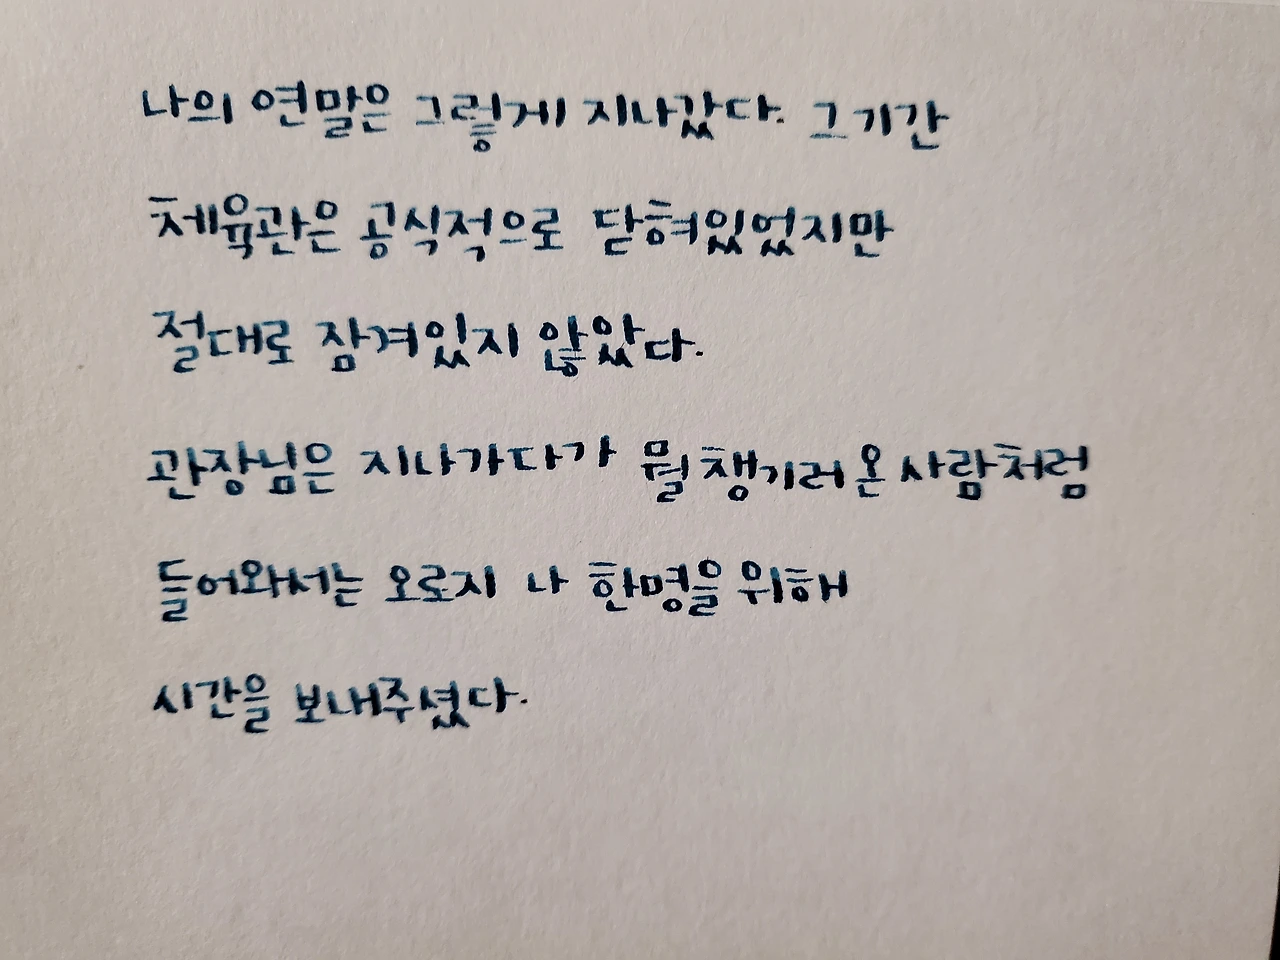 나의 연말은 그렇게 지나갔다. 그 기간
체육관은 공식적으로 닫혀있었지만
절대로 잠겨있지 않았다.
관장님은 지나가다가 뭘 챙기러 온 사람처럼
들어와서는 오로지 나 한명을 위해
시간을 보내주셨다.